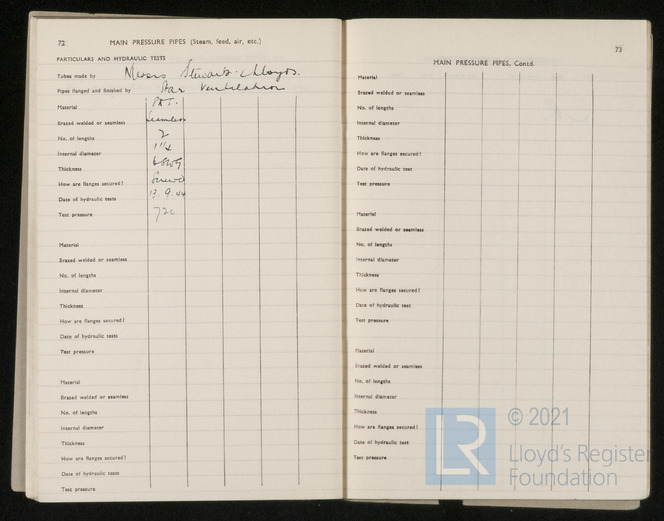 72 MAIN PRESSURE PIPES (Steam, feed, air, etc.)
PARTICULARS AND HYDRAULIC TESTS
Tubes made by Messrs Stewarts & Lloyds.
Pipes flanged and finished by Star Ventilation
Material
Brazed welded or seamless Seamless
No. of lengths 2
Internal diameter 1 1/4
Thickness
How are flanges secured? Screwed
Date of hydraulic tests 13.9.44
Test pressure 720
Material
Brazed welded or seamless
No. of lengths
Internal diameter
Thickness
How are flanges secured?
Date of hydraulic tests
Test pressure
Material
Brazed welded or seamless
No. of lengths
Internal diameter
Thickness
How are flanges secured?
Date of hydraulic tests
Test pressure
73
MAIN PRESSURE PIPES, Contd.
Material
Brazed welded or seamless
No. of lengths
Internal diameter
Thickness
How are flanges secured?
Date of hydraulic test
Test pressure
Material
Brazed welded or seamless
No. of lengths
Internal diameter
Thickness
How are flanges secured?
Date of hydraulic test
Test pressure
Material
Brazed welded or seamless
No. of lengths
Internal diameter
Thickness
How are flanges secured?
Date of hydraulic test
Test pressure
LR
© 2021
Lloyd's Register
Foundation